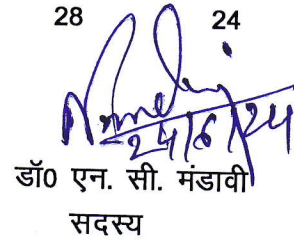 28 24
डॉ0 एन. सी. मंडावी
सदस्य